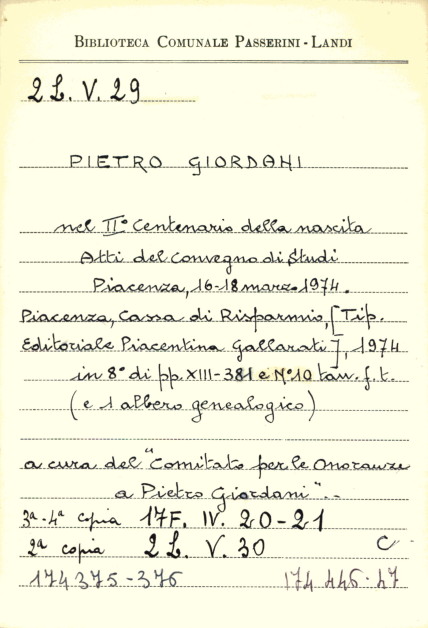 BIBLIOTECA COMUNALE PASSERINI - LANDI
2 L. V. 29
PIETRO GIORDANI
nel II° Centenario della nascita
Atti del Convegno di Studi
Piacenza, 16-18 marzo 1974.
Piacenza, Cassa di Risparmio, [Tip.
Editoriale Piacentina Gallarati], 1974
in 8° di pp. XIII-381 e N° 10 tav. f. t.
(e 1 albero genealogico)
a cura del "Comitato per le Onoranze
a Pietro Giordani". -
3ª-4ª copia 17F. IV. 20-21
2ª copia 2 L. V. 30 C
174375-376 174 446-47